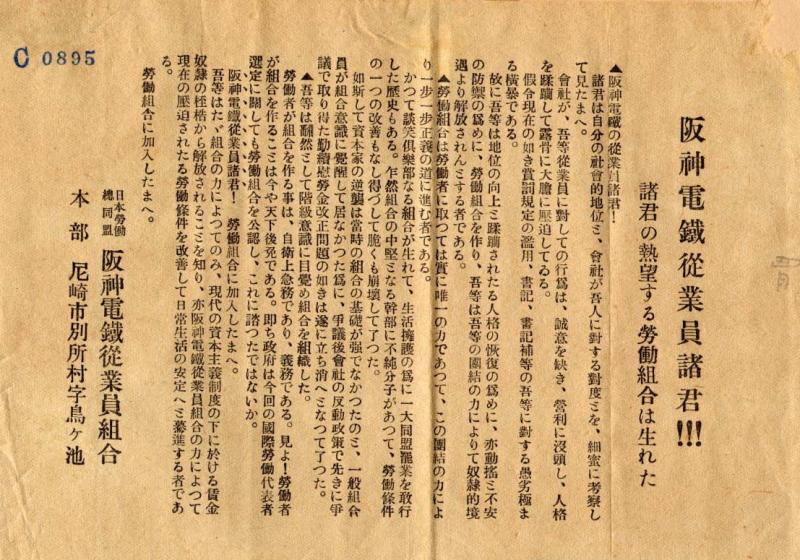 阪神電鐵從業員諸君!!!
諸君の熱望する勞働組合は生れた
▲阪神電鐵の從業員諸君!
諸君は自分の社會的地位と、會社が吾人に對する對度とを、細蜜に考察し
て見たまへ。
會社が、吾等從業員に對しての行爲は、誠意を缺き、營利に沒頭し、人格
を蹂躪して露骨に大膽に壓迫してゐる。
假令現在の如き賞罰規定の濫用、書記、書記補等の吾等に對する愚劣極ま
る橫暴である。
故に吾等は地位の向上と蹂躪されたる人格の恢復の爲めに、亦動搖と不安
の防禦の爲めに、勞働組合を作り、吾等は吾等の團結の力によりて奴隸的境
遇より解放されんとする者である。
▲勞働組合は勞働者に取つては實に唯一の力であつて、この團結の力によ
り一步一步正義の道に進む者である。
かつて談笑俱樂部なる組合が生れて、生活擁護の爲に一大同盟罷業を敢行
した歷史もある。乍然組合の中堅となる幹部に不純分子があつて、勞働條件
の一つの改善もなし得づして脆くも崩壞して了つた。
如斯して資本家の逆襲は當時の組合の基礎が强でなかつたのと、一般組合
員が組合意識に覺醒して居なかつた爲に、爭議後會社の反動政策で先きに爭
議で取り得た勤續慰勞金改正問題の如きは遂に立ち消へとなつて了つた。
▲吾等は飜然として階級意識に目覺め組合を組織した。
勞働者が組合を作る事は、自衞上急務であり、義務である。見よ!勞働者
が組合を作ることは今や天下後免である。卽ち政府は今回の國際勞働代表者
選定に關しても勞働組合を公認し、これに諮つたではないか。
阪神電鐵從業員諸君! 勞働組合に加入したまへ。
吾等はたゞ組合の力によつてのみ、現代の資本主義制度の下に於ける賃金
奴隸の桎梏から解放されることを知り、亦阪神電鐵從業員組合の力によつて
現在の壓迫されたる勞働條件を改善して日常生活の安定へと驀進する者であ
る。
勞働組合に加入したまへ。
日本勞働
總同盟 阪神電鐵從業員組合
本部 尼崎市別所村字鳥ヶ池
C 0895